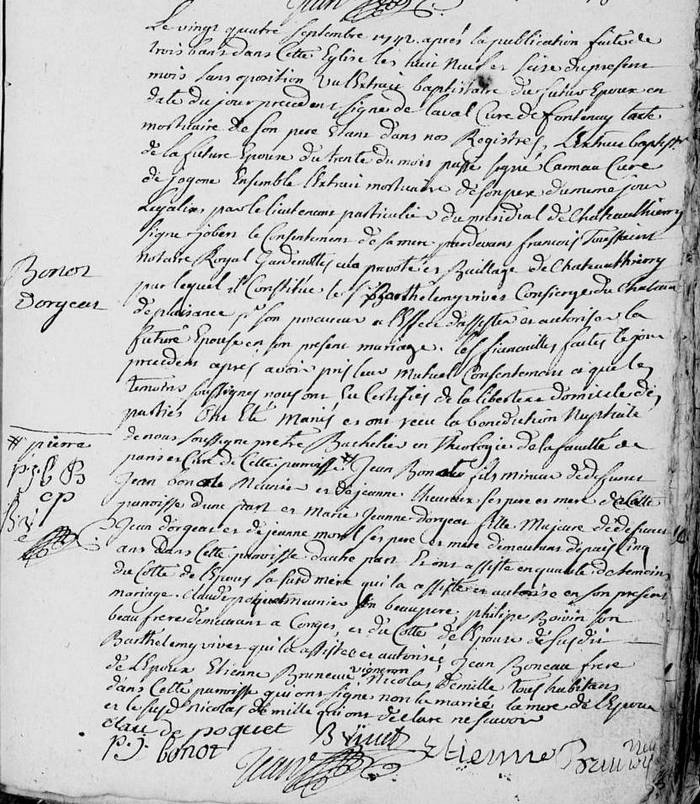 Le vingt quatre septembre 1742 après la publication faite de
trois bans dans Cette Eglise les huit neuf et seise du present
mois sans oposition Vu l'Extrait baptistaire du futur Epoux en
date du jour precedent signé de laval Curé de fontenoy
mortuaire de son pere Etant dans nos Registres, l'Extrait baptist
de la future Epouse du trente du mois passé signé Carmeau Curé
de jogone Ensemble l'Extrait mortuaire de son pere du meme jour
legalisés par le lieutenant particulier du presidial de Chateauthierry
signé jobert le Consentement de sa mere pardevant françois Toussaint
notaire Royal Gardenottes en la prevoté et Bailliage de Chateauthierry
par lequel il Constitue le Sr Barthelemy vives Concierge du Chateau
de plaisance pr son procureur a l'Effet d'assister et autoriser la
future Epouse en son present mariage. les fiancailles faites le jour
precedent après avoir pris leur Mutuel Consentement et que les
temoins soussignés nous ont Eu Certifiés de la liberté et domicile des
parties Ont Eté Mariés et ont reçu la benediction Nuptiale
de nous soussigné pretre Bachelier en Theologie de la faculté de
paris et Curé de Cette paroisse # Jean Bonot fils mineur de defunt
Jean bonot Meunier et de jeanne heureux ses pere et mere de Cette
paroisse d'une part et Marie Jeanne dorgeat fille Majeure de defunt
Jean dorgeat et de jeanne morel ses pere et mere demeurans depuis Cinq
ans Dans Cette paroisse d'autre part Et ont assisté en qualité de temoins
du Coté de l'Epoux sa susd mere qui l'a assisté et autorisé en son present
mariage. Claude poquet meunier son beaupere, philipe Boivin son
beau frere demeurant a Conges, et du Coté de l'Epouse de susdit
Barthelemy vives qui l'a assistée et autorisée, Jean Boneau frere
de l'Epoux Etienne Bruneau vigneron Nicolas demille tous habitans
dans Cette paroisse qui ont signé non la mariée la mere de l'Epoux
et le susd Nicolas de mille qui ont declaré ne savoir
Bonot
Dorgeat
# pierre
p j b B
c p
claude poquet
p. j. bonot
Etienne Bruneau